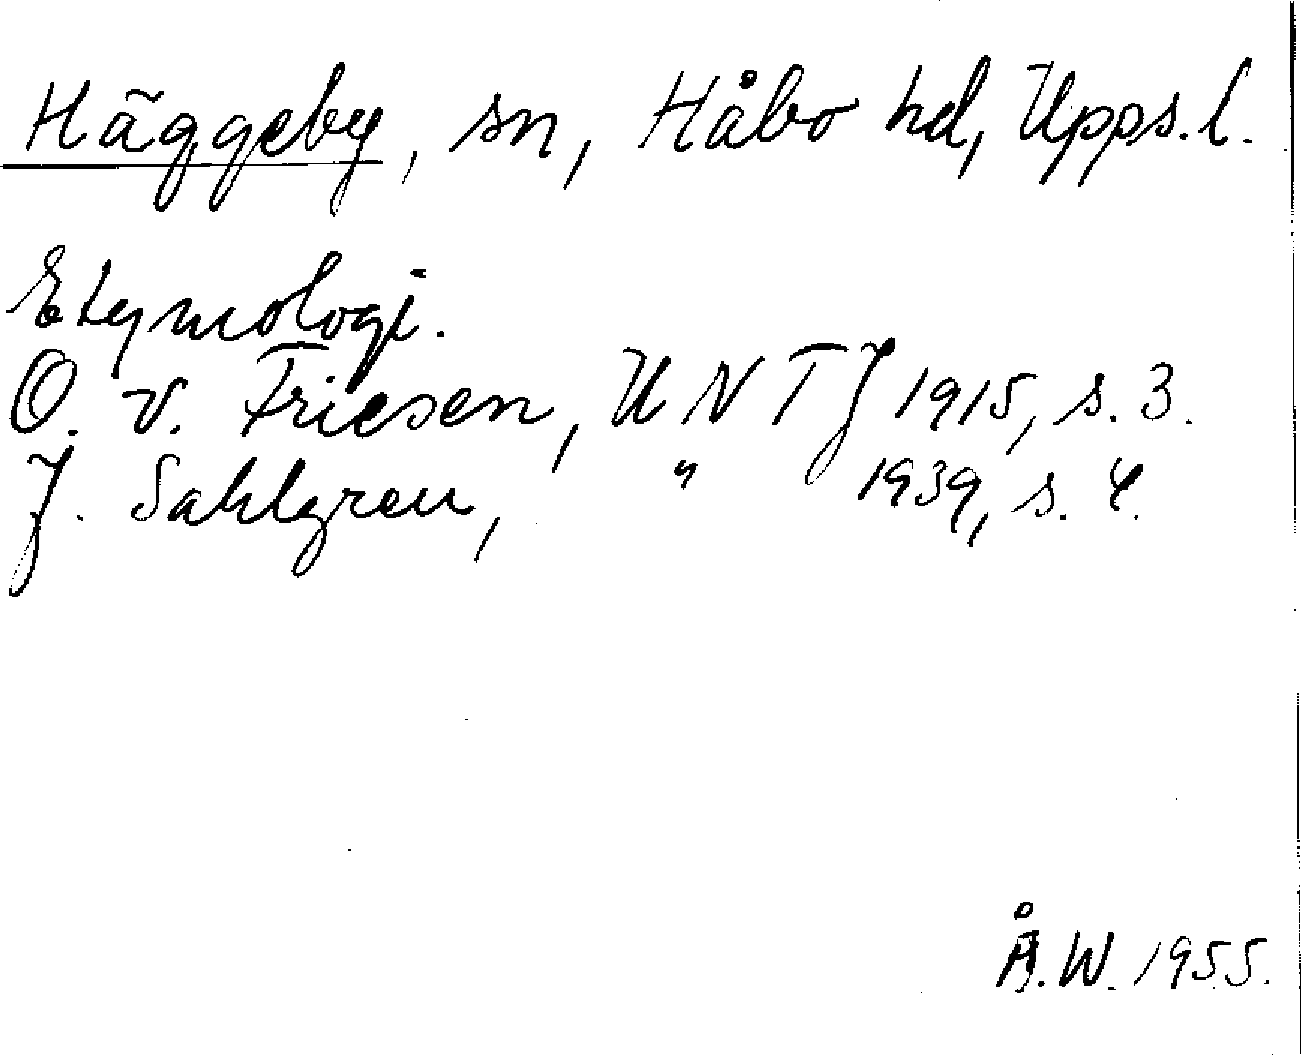 Häggeby, sn, Håbo hd, Upps. l.
Etymologi.
O. v. Friesen, UNTJ 1915, s. 3.
J. Sahlgren, " 1939, s. 4.
Å.W. 1955.